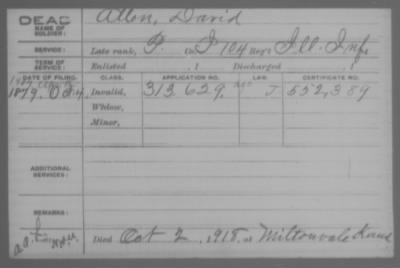 DEAD
NAME OF SOLDIER: Allen, David
SERVICE: Late rank, P. Co I 104 Reg't Ill. Inf.
TERM OF SERVICE: Enlisted , 1 Discharged , 1
DATE OF FILING. CLASS. APPLICATION NO. LAW. CERTIFICATE NO.
1879. Invalid, 313 629. J 552,389
Widow,
Minor,
ADDITIONAL SERVICES:
REMARKS:
Died Oct 2, 1918. at Miltonvale Kans